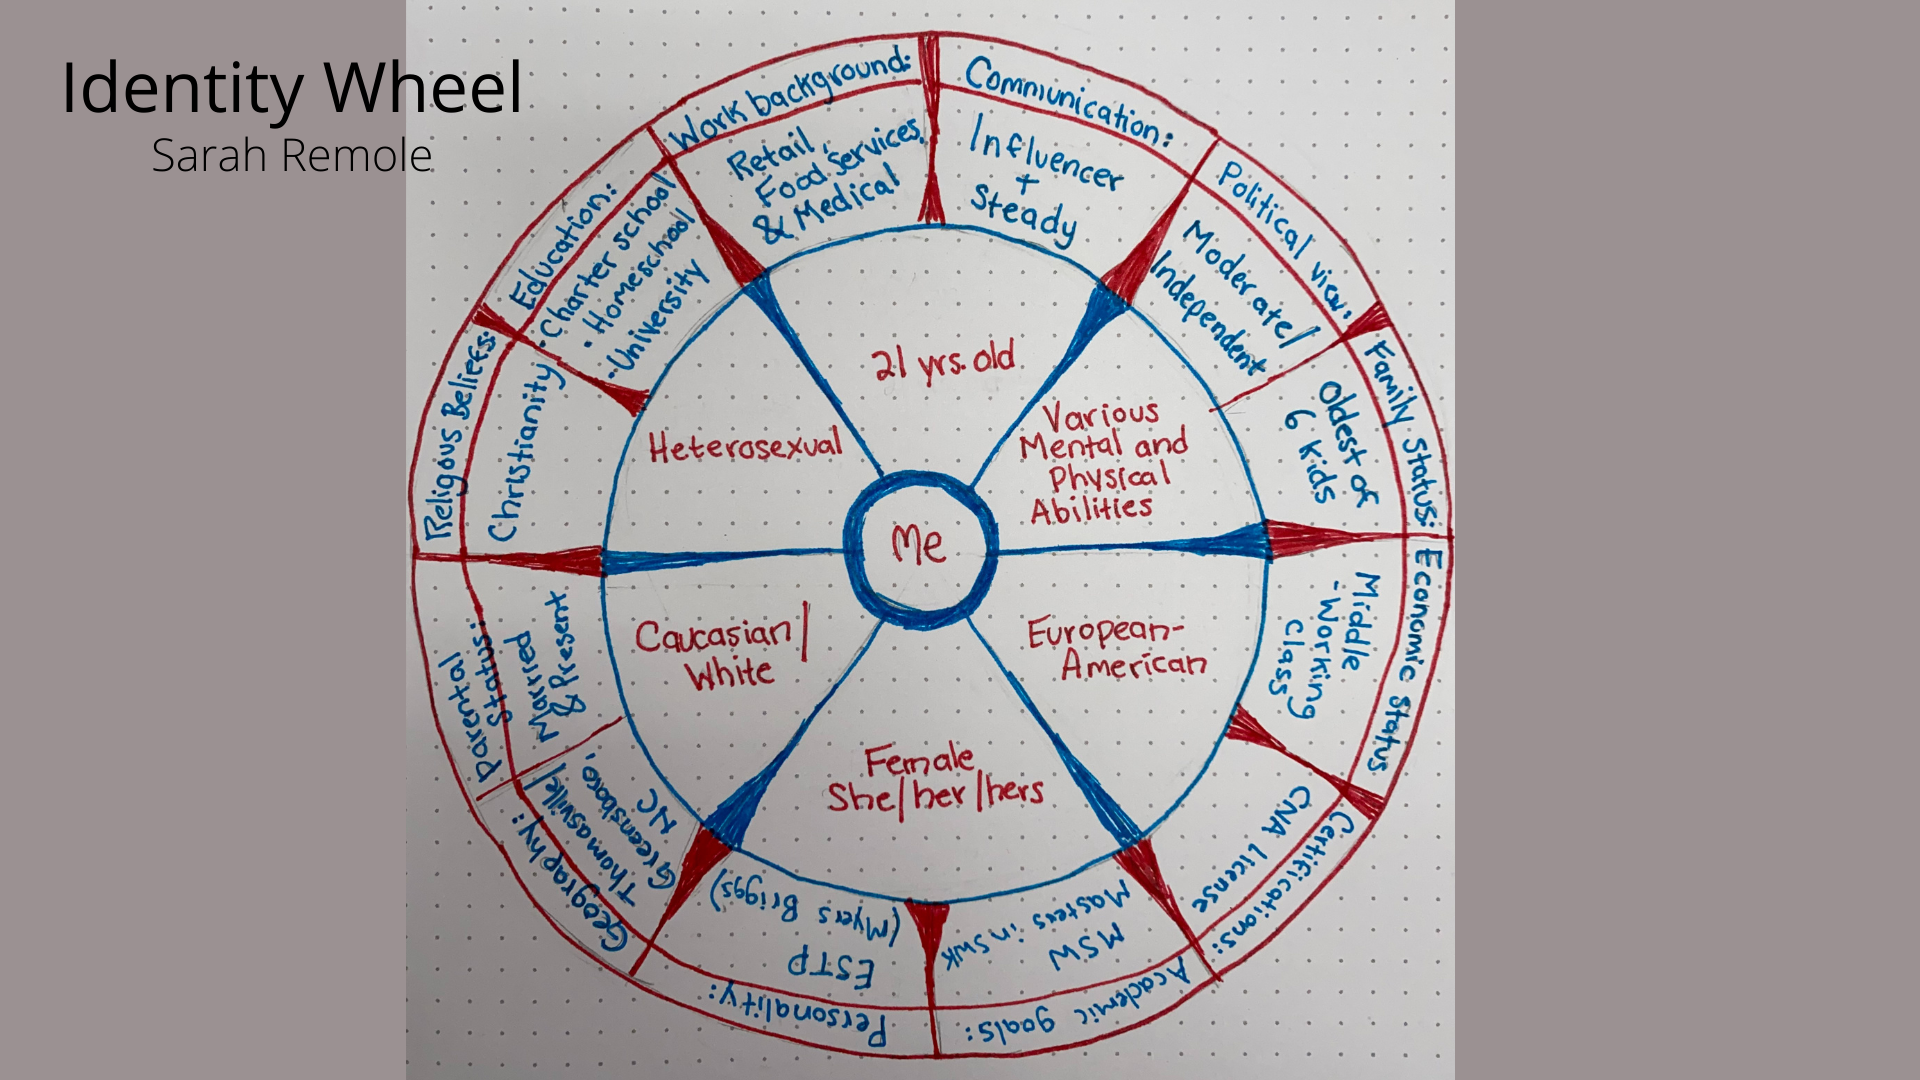 Identity Wheel
Sarah Remole
Work background:
Retail,
Food Services,
& Medical
Communication:
Influencer
+
Steady
Political view:
Moderate/
Independent
Family Status:
Oldest of
6 kids
Economic Status
Middle
-Working
class
Certifications:
CNA License
Academic goals:
MSW
Masters in SWK
Personality:
ESTP
(Myers Briggs)
Geography:
Thomasville/
Greensboro,
NC
Parental
Status:
Married
& Present
Religous Beliefs:
Christianity
Education:
• Charter school
• Homeschool
• University
21 yrs. old
Various
Mental and
Physical
Abilities
European-
American
Female
She/her/hers
Caucasian/
White
Heterosexual
Me